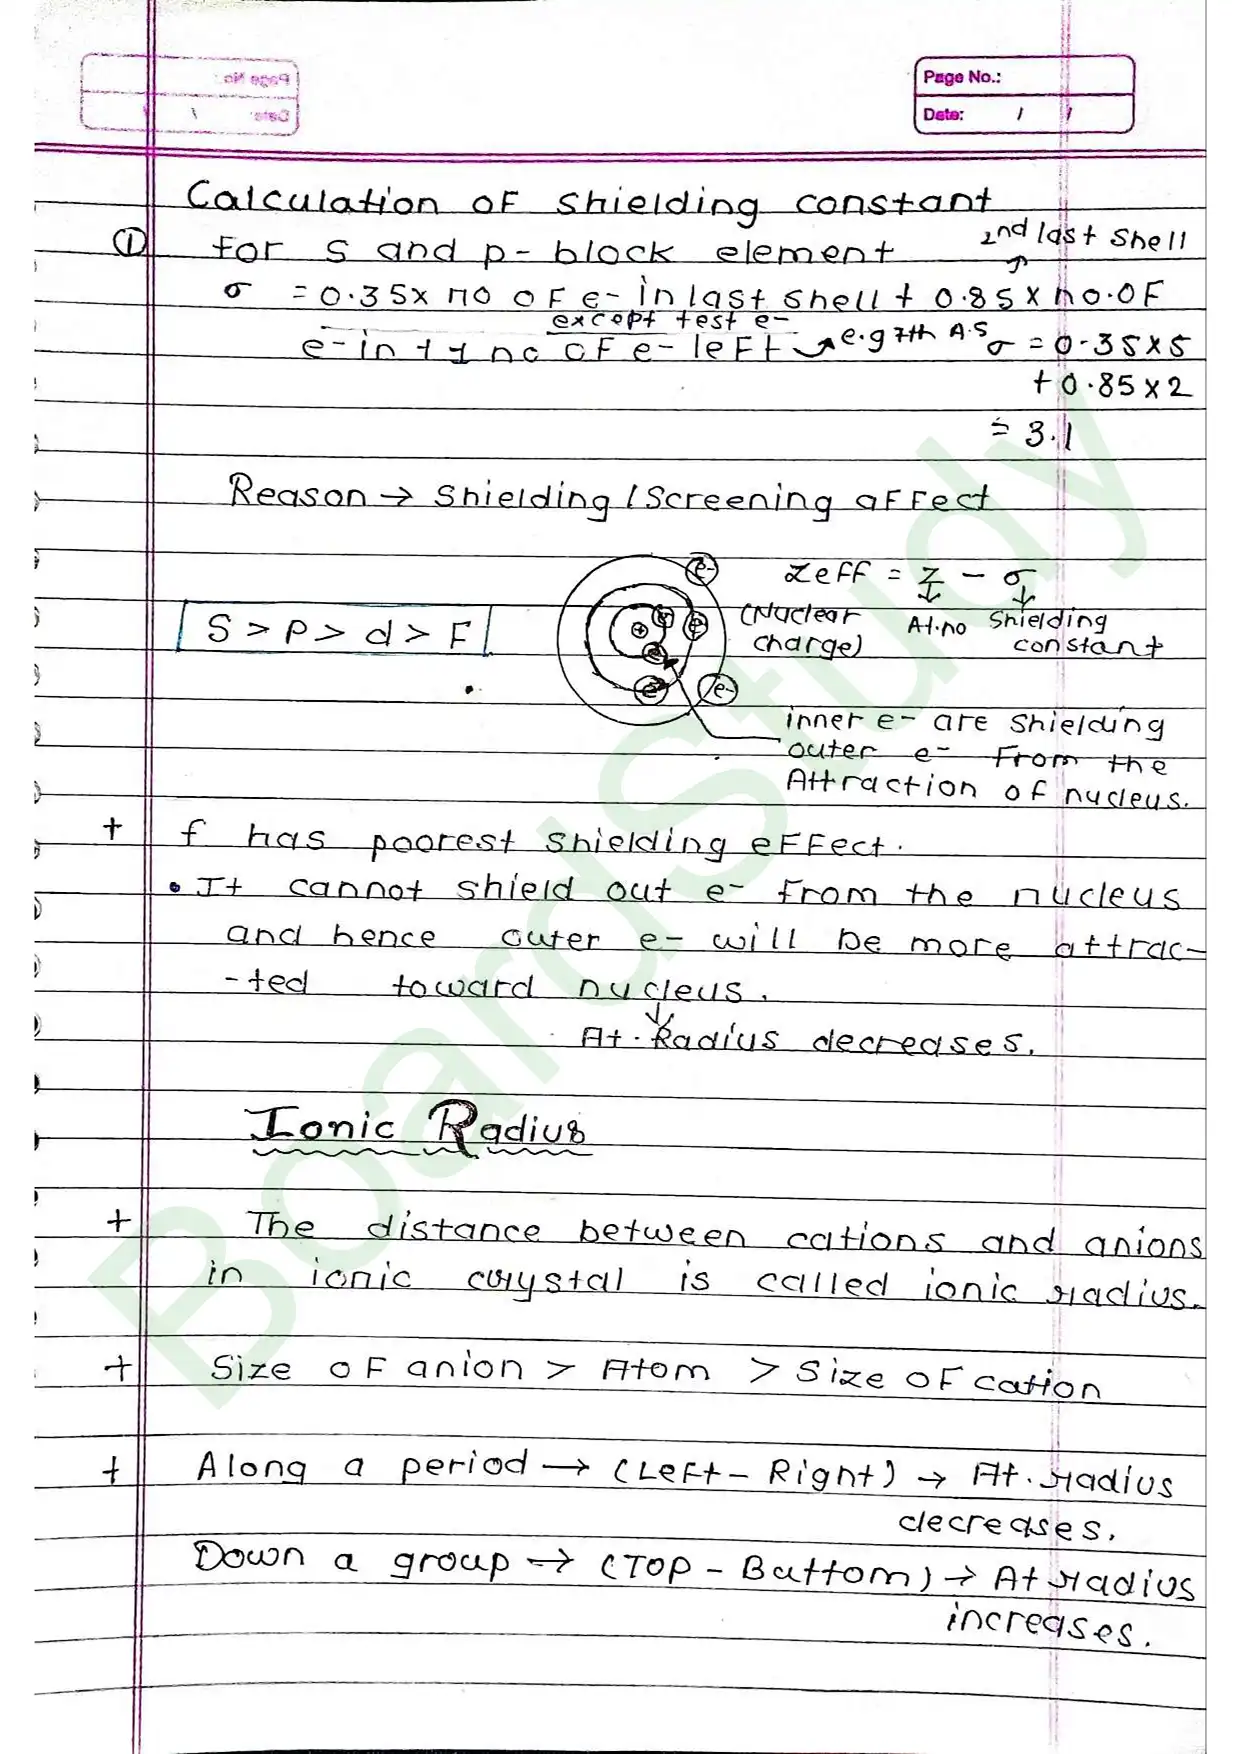 Page No.:
Date: / /
Calculation of shielding constant
① for s and p-block element
2nd last shell
σ = 0.35x no of e- in last shell + 0.85 x no.of
except test e-
e- in + 1 no of e- left
e.g 7th A.S σ = 0.35x5
+ 0.85x2
= 3.1
Reason → shielding/screening affect
e-
Zeff = Z - σ
(Nuclear charge)
At.no
shielding constant
S > P > d > F
+
e-
e-
e-
inner e- are shielding
outer e- from the
Attraction of nucleus.
+ f has poorest shielding effect.
• It cannot shield out e- from the nucleus
and hence outer e- will be more attrac-
-ted toward nucleus.
At. Radius decreases.
Ionic Radius
+ The distance between cations and anions
in ionic crystal is called ionic radius.
+ Size of anion > Atom > Size of cation
+ Along a period → (Left - Right) → At. radius
decreases.
Down a group → (Top - Buttom) → At radius
increases.
BoardStudy